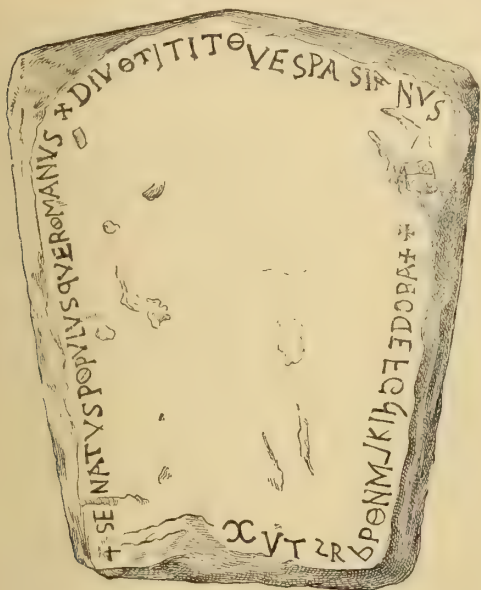 + SENATVSPOPVLVSqVEROMANVS
+ DIVOTITITO VESPASIANVS
++ABCDEFGhIKLMNOPq
RSTVX